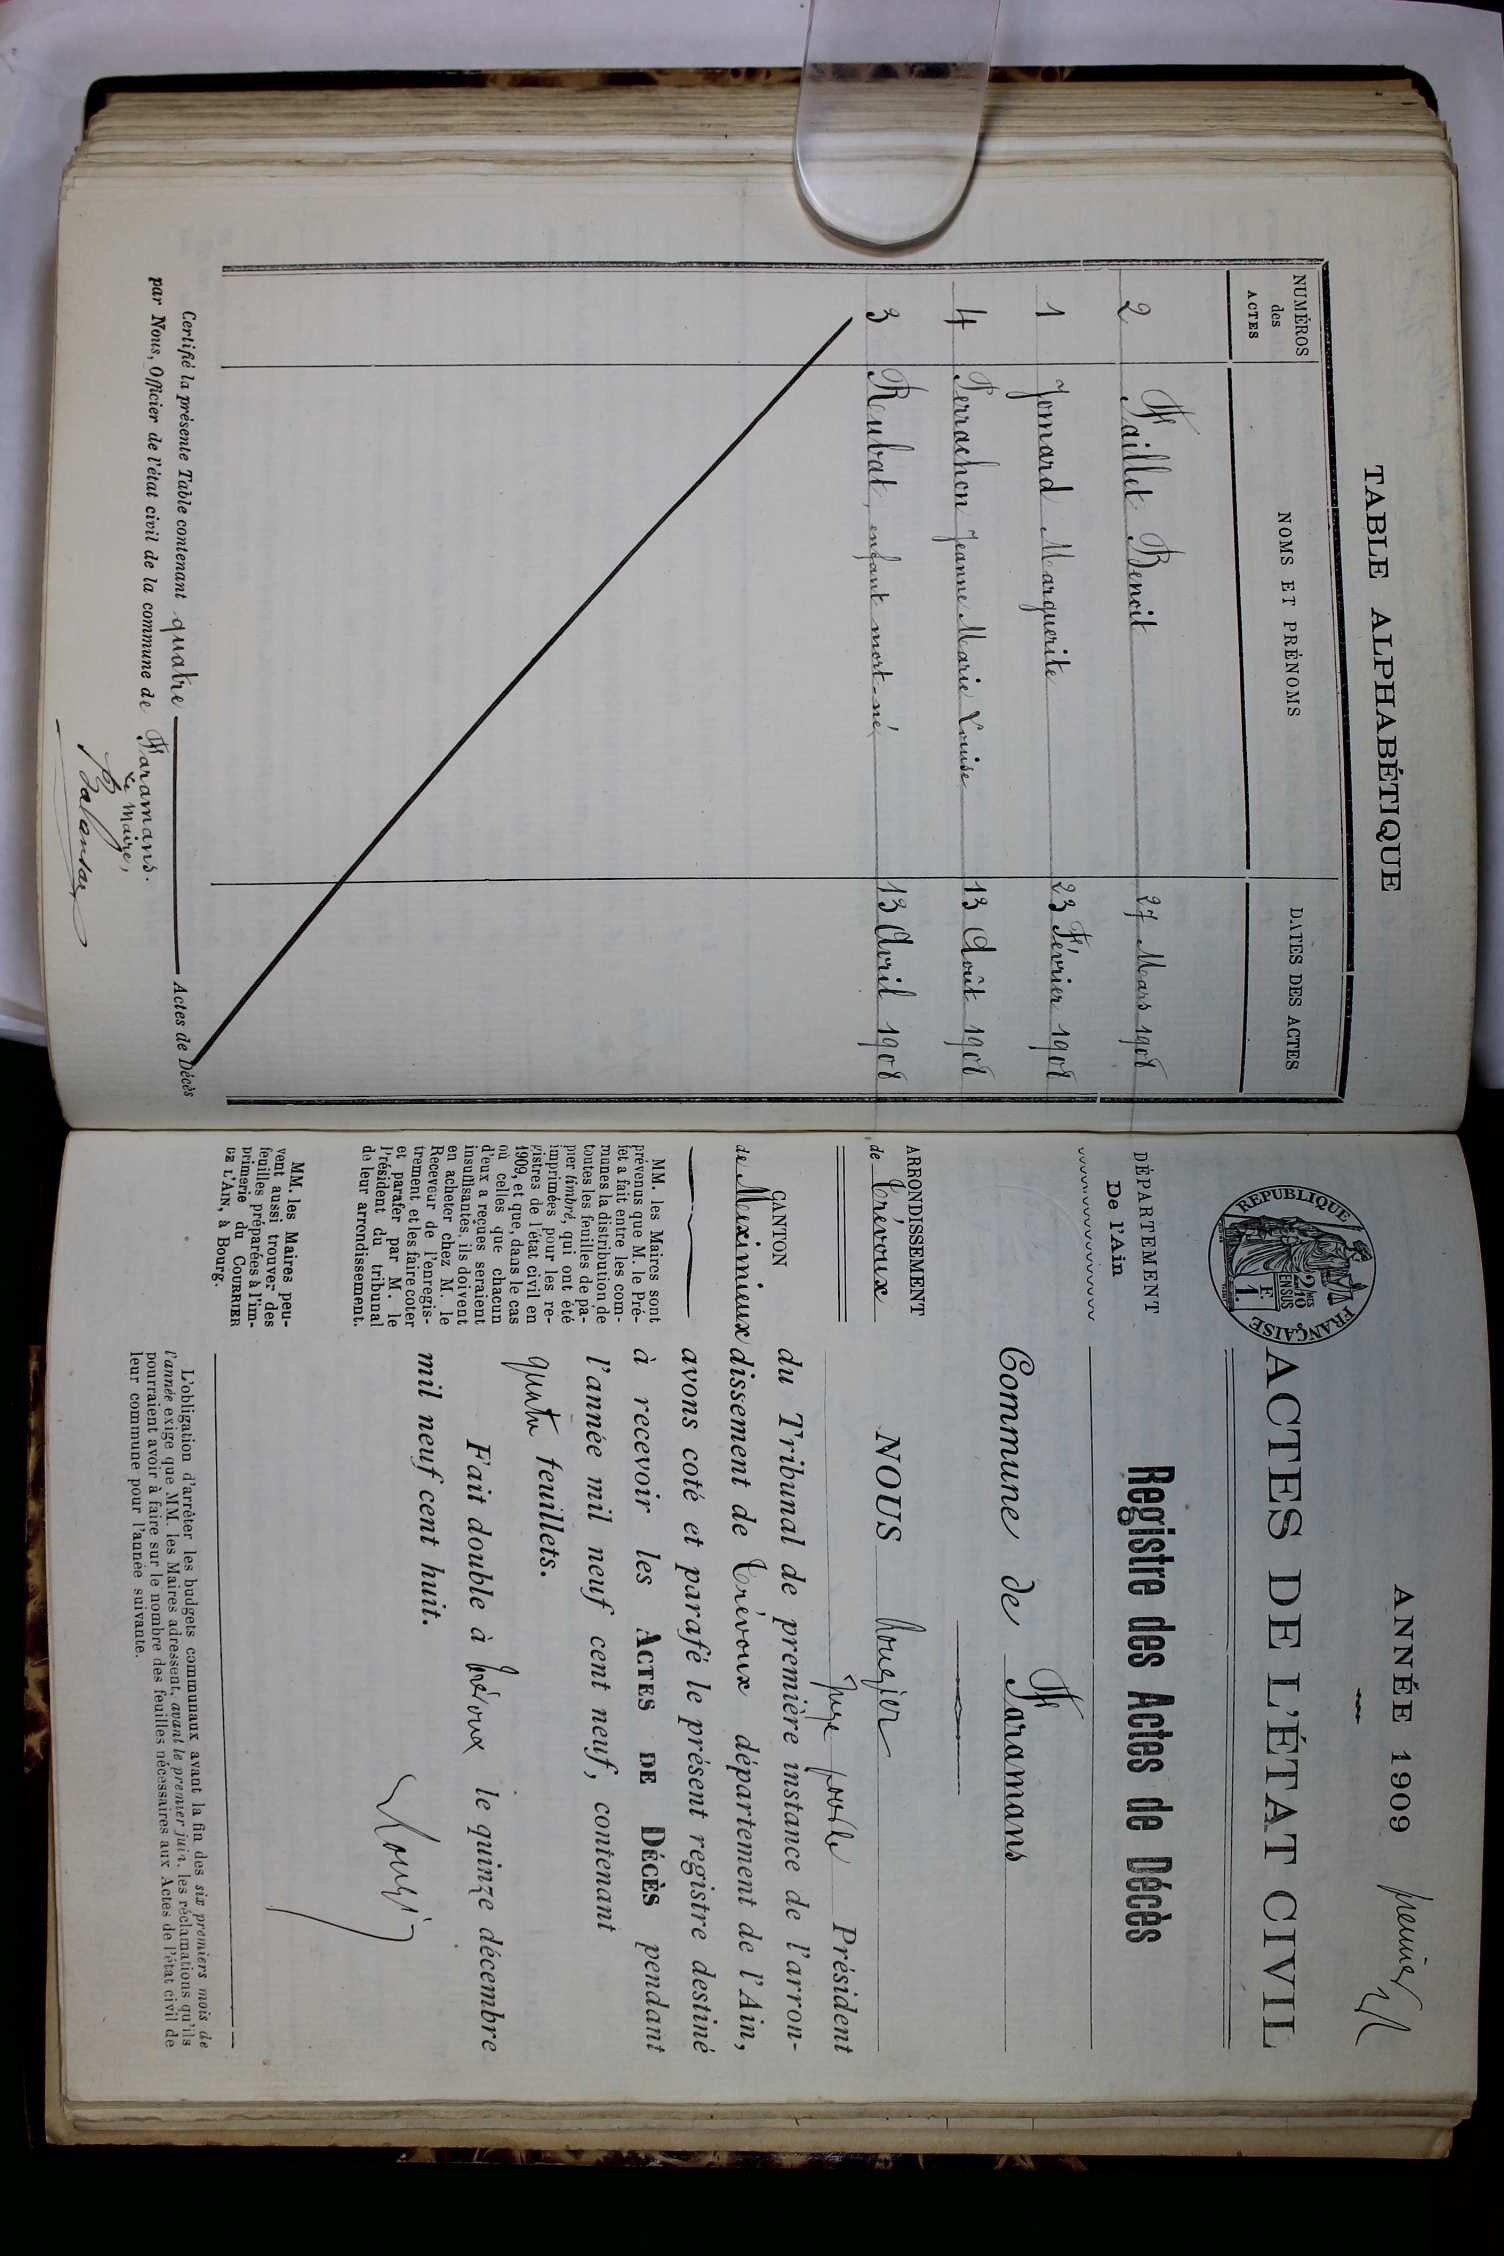 TABLE ALPHABÉTIQUE
NUMÉROS des ACTES
NOMS ET PRÉNOMS
DATES DES ACTES
2 Faillet Benoit 27 Mars 1908
1 Jomard Marguerite 23 Février 1908
4 Perrachon Jeanne Marie Louise 13 Août 1908
3 Reubat, enfant mort-né 13 Avril 1908
Certifié la présente Table contenant quatre Actes de Décès
par Nous, Officier de l'état civil de la commune de Faramans.
Le Maire,
ANNÉE 1909
premier
RÉPUBLIQUE FRANÇAISE
2/10 EN SUS
F.
1.
ACTES DE L'ÉTAT CIVIL
DÉPARTEMENT
De l'Ain
ARRONDISSEMENT
de Trévoux
CANTON
de Meximieux
MM. les Maires sont
prévenus que M. le Pré-
fet a fait entre les com-
munes la distribution de
toutes les feuilles de pa-
pier timbré, qui ont été
imprimées pour les re-
gistres de l'état civil en
1909, et que, dans le cas
où celles que chacun
d'eux a reçues seraient
insuffisantes, ils doivent
en acheter chez M. le
Receveur de l'enregis-
trement et les faire coter
et parafer par M. le
Président du tribunal
de leur arrondissement.
MM. les Maires peu-
vent aussi trouver des
feuilles préparées à l'im-
primerie du COURRIER
DE L'AIN, à Bourg.
Registre des Actes de Décès
Commune de Faramans
NOUS Rougier
Juge pour le Président
du Tribunal de première instance de l'arron-
dissement de Trévoux département de l'Ain,
avons coté et parafé le présent registre destiné
à recevoir les ACTES DE DÉCÈS pendant
l'année mil neuf cent neuf, contenant
quatre feuillets.
Fait double à Trévoux le quinze décembre
mil neuf cent huit.
L'obligation d'arrêter les budgets communaux avant la fin des six premiers mois de
l'année exige que MM. les Maires adressent, avant le premier juin, les réclamations qu'ils
pourraient avoir à faire sur le nombre des feuilles nécessaires aux Actes de l'état civil de
leur commune pour l'année suivante.